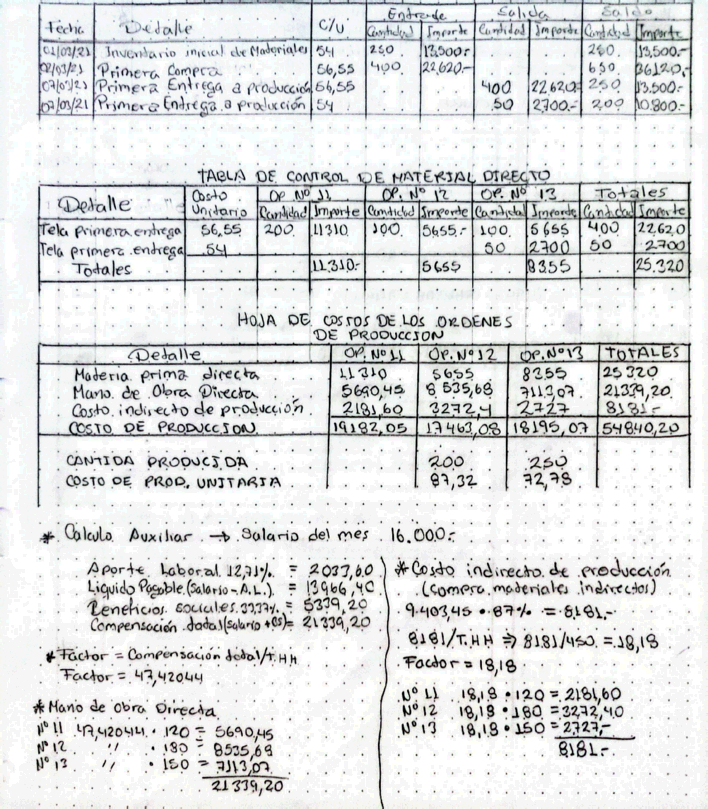 Entrada Salida Saldo
Fecha Detalle C/U Cantidad Importe Cantidad Importe Cantidad Importe
01/03/21 Inventario inicial de Materiales 54 250 13,500.- 250. 13,500.-
02/03/21 Primera Compra 56,55 400 22,620- 650 36120,-
07/03/21 Primera Entrega a producción 56,55 400 22,620- 250 13.500.-
07/03/21 Primera Entrega a producción 54 50 2700.- 200 10.800.-
TABLA DE CONTROL DE MATERIAL DIRECTO
Detalle Costo Unitario OP Nº 11 OP. Nº 12 OP. Nº 13 Totales
Cantidad Importe Cantidad Importe Cantidad Importe Cantidad Importe
Tela primera entrega 56,55 200. 11310 100. 5655.- 100. 5655 400 22,620
Tela primera entrega 54 50 2700 50 2700
Totales 11310- 5655 8355 25.320
HOJA DE COSTOS DE LOS ORDENES
DE PRODUCCION
Detalle OP. Nº 11 OP. Nº 12 OP. Nº 13 TOTALES
Materia prima directa 11310 5655 8355 25320
Mano de Obra Directa 5690,45 8535,68 7113,07 21339,20
Costo indirecto de producción 2181,60 3272,4 2727 8181.-
COSTO DE PRODUCCION 19182,05 17463,08 18195,07 54840,20
CANTIDA PRODUCIDA 200 250
COSTO DE PROD. UNITARIA 87,32 72,78
* Calculo Auxiliar → Salario del mes 16.000.-
Aporte Laboral 12,71% = 2033,60
Liquido Pagable (Salario - A.L.) = 13966,40
Beneficios sociales 33,37% = 5339,20
Compensación total (salario + BS) = 21339,20
* Factor = Compensación total/T.HH
Factor = 47,42044
* Mano de Obra Directa
Nº 11 47,42044 • 120 = 5690,45
Nº 12 " • 180 = 8535,68
Nº 13 " • 150 = 7113,07
21339,20
* Costo indirecto de producción
(compra materiales indirectos)
9.403,45 • 87% = 8181.-
8181/T.HH ⇒ 8181/450 = 18,18
Factor = 18,18
Nº 11 18,18 • 120 = 2181,60
Nº 12 18,18 • 180 = 3272,40
Nº 13 18,18 • 150 = 2727,-
8181.-